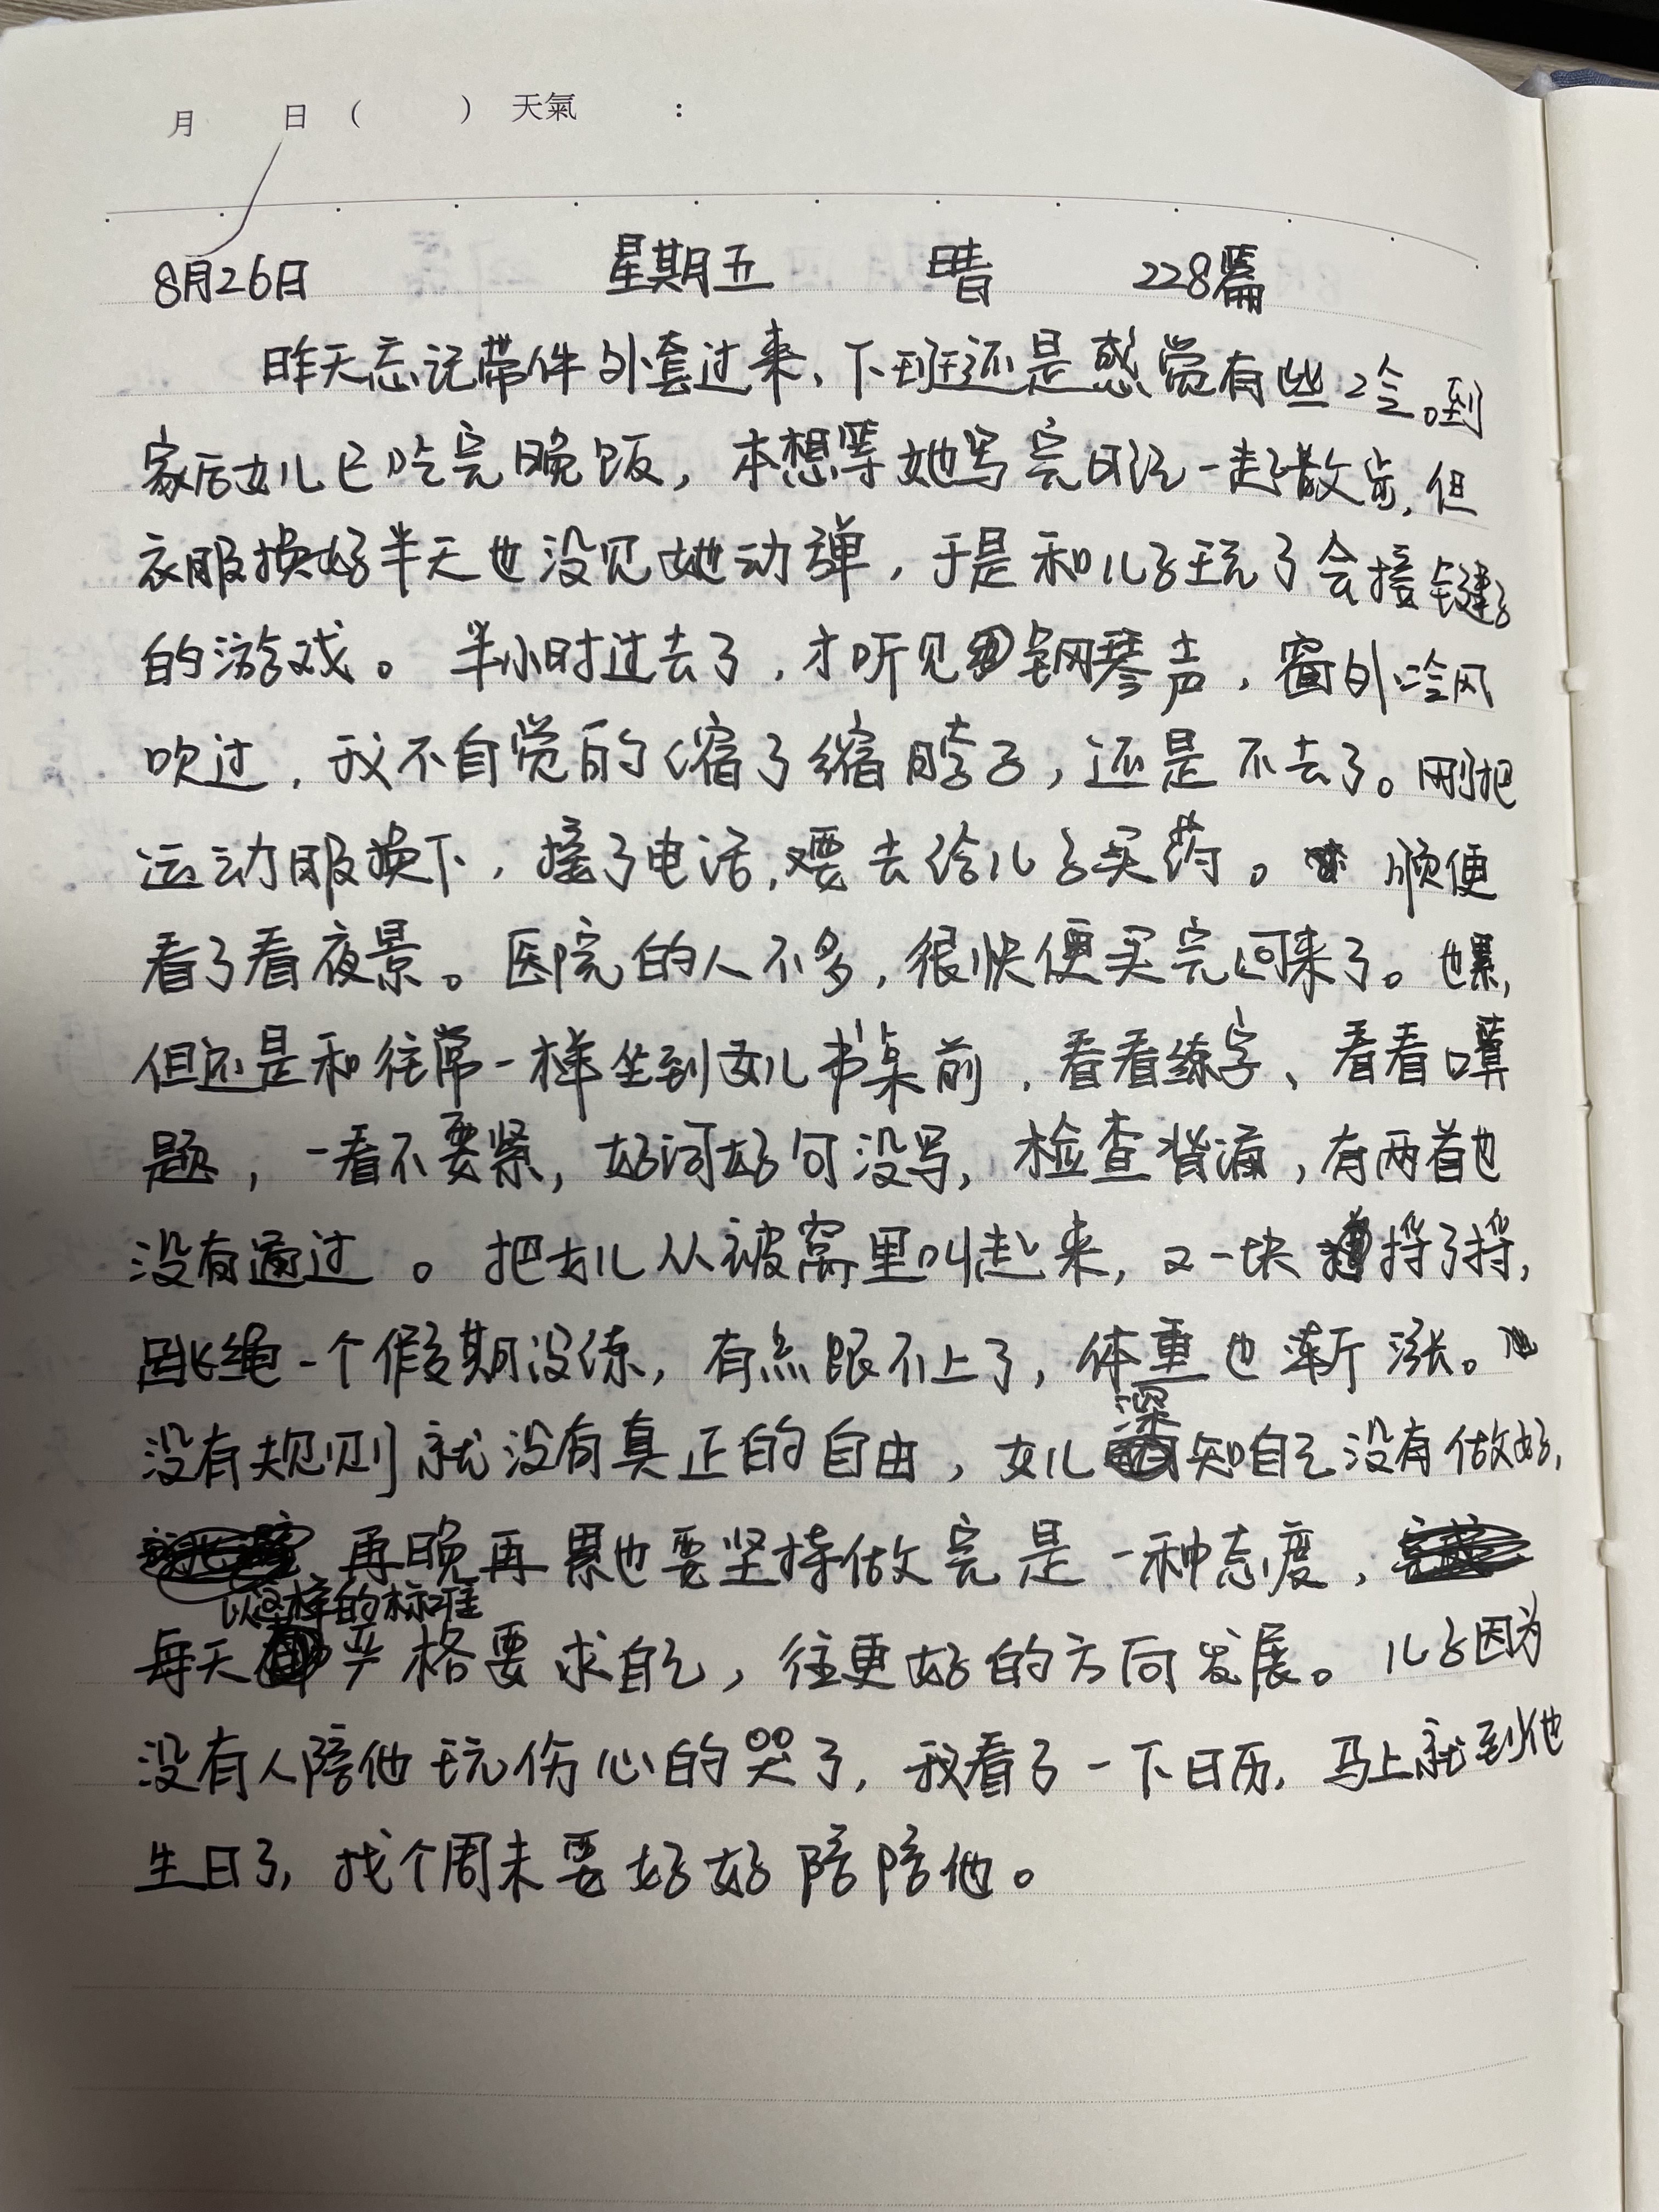 月 日 ( ) 天氣 :
8月26日 星期五 晴 228篇
昨天忘记带件外套过来、下班还是感觉有些冷。到
家后女儿已吃完晚饭，本想等她写完日记一起散步，但
衣服换好半天也没见她动弹，于是和儿子玩了会接毽子
的游戏。半小时过去了，才听见钢琴声，窗外冷风
吹过，我不自觉的缩了缩脖子，还是不去了。刚把
运动服换下，接了电话，要去给儿子买药。顺便
看了看夜景。医院的人不多，很快便买完回来了。也累，
但还是和往常一样坐到女儿书桌前，看看练字、看看口算
题，一看不要紧，好词好句没写，检查背诵，有两首也
没有通过。把女儿从被窝里叫起来，又一块捋了捋，
跳绳一个假期没练，有点跟不上了，体重也渐涨。
没有规则就没有真正的自由，女儿深知自己没有做好，
再晚再累也要坚持做完是一种态度，
每天以这样的标准严格要求自己，往更好的方向发展。儿子因为
没有人陪他玩伤心的哭了，我看了一下日历，马上就到他
生日了，找个周末要好好陪陪他。